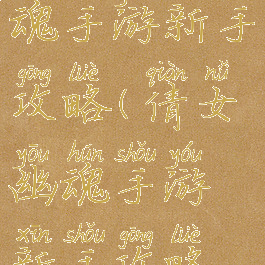 魂手游新手
gōng lüè qiàn nǚ
攻略(倩女
yōu hún shǒu yóu
幽魂手游
xīn shǒu gōng lüè
新手攻略